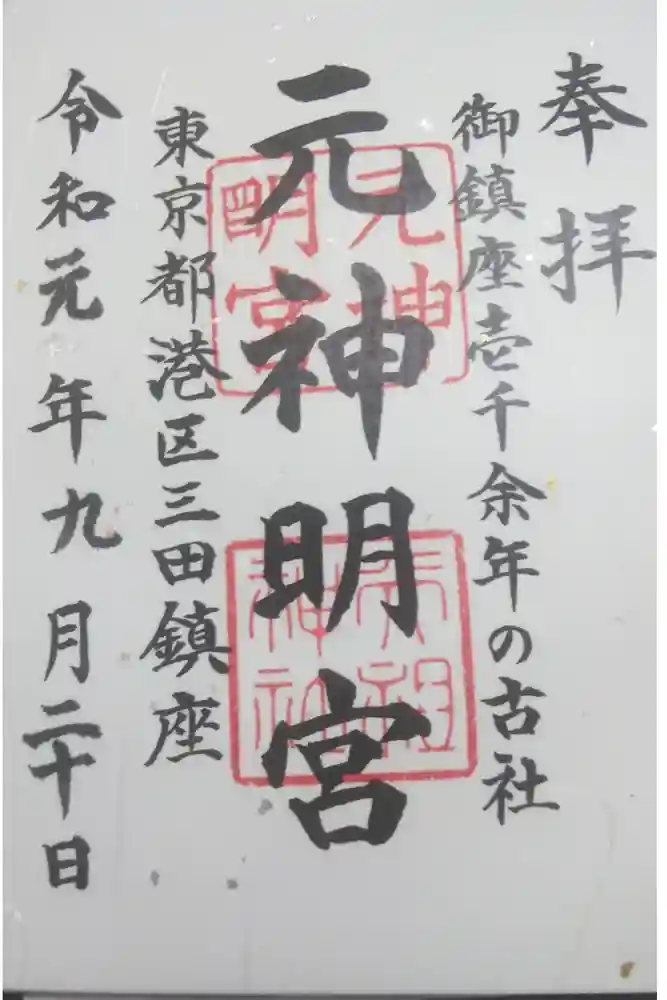 奉拝
御鎮座壱千余年の古社
元神明宮
元神明宮
天祖神社
東京都港区三田鎮座
令和元年九月二十日